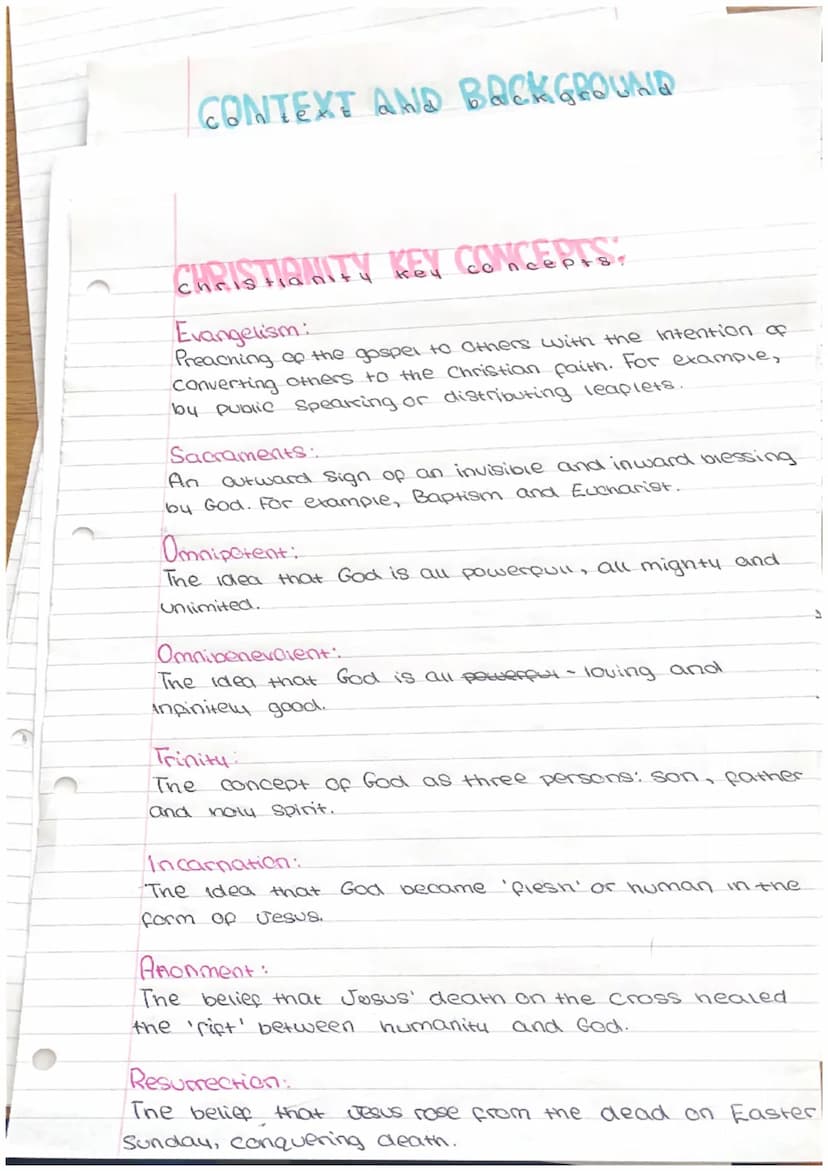 CONTEXT AND BACKGROUND
context and background
CHRISTIANITY KEY CONCEPTS:
christianity key concepts:
Evangelism:
Preaching of the gospel to others with the intention of
converting others to the Christian faith. For example,
by public speaking or distributing leaflets.
Sacraments:
An outward sign of an invisible and inward blessing
by God. For example, Baptism and Eucharist.
Omnipotent:
The idea that God is all powerfull, all mighty and
unlimited.
Omnibenevolent:
The idea that God is all powerful - loving and
infinitely good.
Trinity:
The concept of God as three persons: son, father
and holy spirit.
Incarnation:
The idea that God became 'flesh' or human in the
form of Jesus.
Atonment:
The belief that Jesus' death on the cross healed
the 'rift' between humanity and God.
Resurrection:
The belief that Jesus rose from the dead on Easter
Sunday, conquering death.